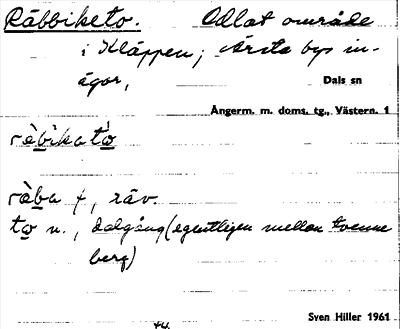 Räbbiketo. Odlat område
i Kläppen; Årsta bys in-
ägor,
Dals sn
Ångerm. m. doms. tg., Västern. 1
rèbikatò
ràba f, räv.
to n., dalgång (egentligen mellan tvenne
berg)
Sven Hiller 1961